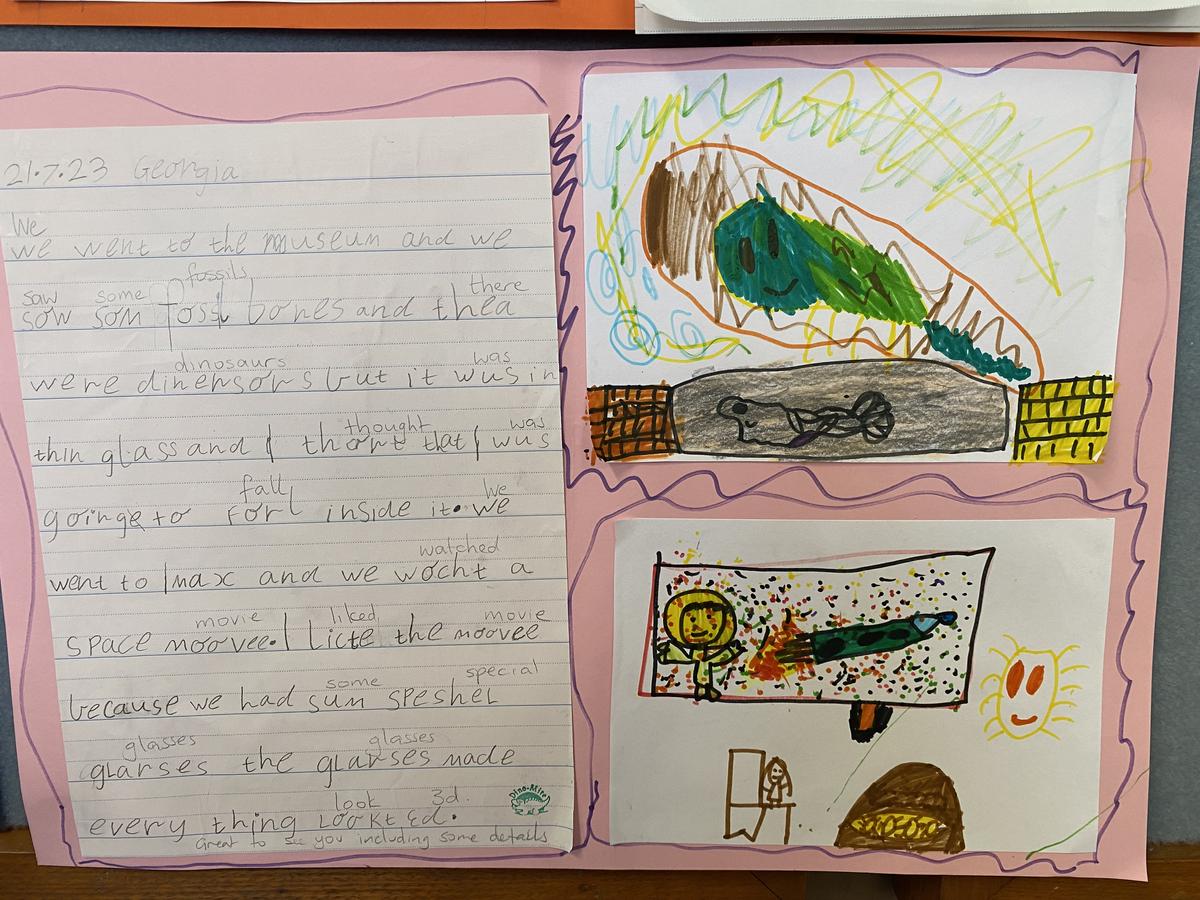 21.7.23 Georgia
We
we went to the museum and we
fossils
saw some there
sow som fossl bones and thea
dinosaurs was
were dinersors but it wus in
thought was
thin glass and I thort that I wus
fall We
goinge to forl inside it. we
watched
went to Imax and we wocht a
movie liked movie
space moovee. I licte the moovee
some special
because we had sum speshel
glasses glasses
glarses the glarses made
look 3d.
every thing lookt Ed.
Dino-Mite
Great to see you including some details